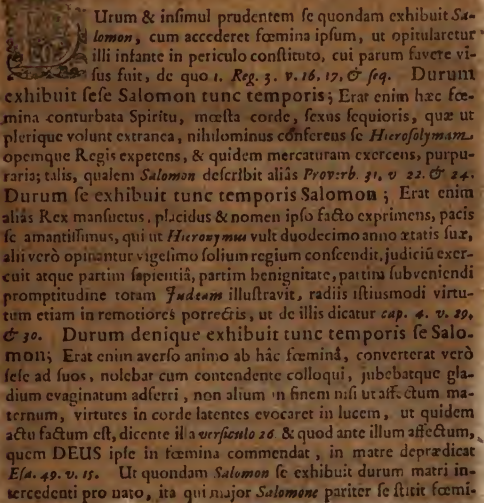 DUrum & insimul prudentem se quondam exhibuit Sa-
lomon, cum accederet fœmina ipsum, ut opitularetur
illi infante in periculo constituto, cui parum favere vi-
sus fuit, de quo 1. Reg. 3. v. 16. 17, & seq. Durum
exhibuit sese Salomon tunc temporis; Erat enim hæc fœ-
mina conturbata Spiritu, mœsta corde, sexus sequioris, quæ ut
plerique volunt extranea, nihilominus conferens se Hierosolymam
opemque Regis expetens, & quidem mercaturam exercens, purpu-
raria; talis, qualem Salomon describit aliàs Proverb. 31, v 22. & 24.
Durum se exhibuit tunc temporis Salomon; Erat enim
aliàs Rex mansuetus, placidus & nomen ipso facto exprimens, pacis
se amantissimus, qui ut Hieronymus vult duodecimo anno ætatis suæ,
alii verò opinantur vigesimo solium regium conscendit, judiciũ exer-
cuit atque partim sapientiâ, partim benignitate, partim subveniendi
promptitudine totam Judæam illustravit, radiis istiusmodi virtu-
tum etiam in remotiores porrectis, ut de illis dicatur cap. 4. v. 29,
& 30. Durum denique exhibuit tunc temporis se Salo-
mon; Erat enim averso animo ab hâc fœminâ, converterat verò
sese ad suos, nolebat cum contendente colloqui, jubebatque gla-
dium evaginatum adferri, non alium in finem nisi ut affectum ma-
ternum, virtutes in corde latentes evocaret in lucem, ut quidem
actu factum est, dicente illa versiculo 26 & quod ante illum affectum,
quem DEUS ipse in fœmina commendat, in matre deprædicat
Esa. 49. v. 15. Ut quondam Salomon se exhibuit durum matri in-
tercedenti pro nato, ita qui major Salomone pariter se stitit fœmi-